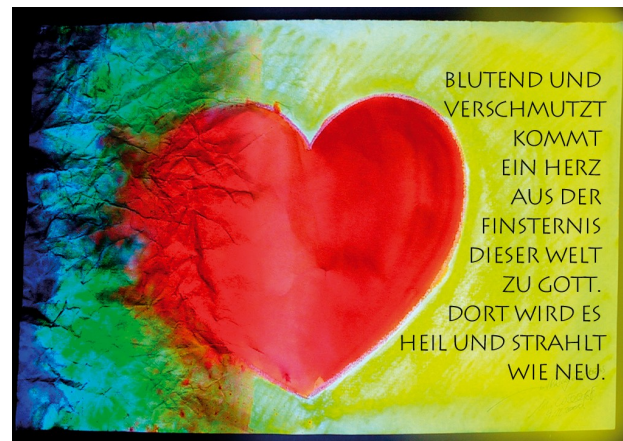 BLUTEND UND
VERSCHMUTZT
KOMMT
EIN HERZ
AUS DER
FINSTERNIS
DIESER WELT
ZU GOTT.
DORT WIRD ES
HEIL UND STRAHLT
WIE NEU.